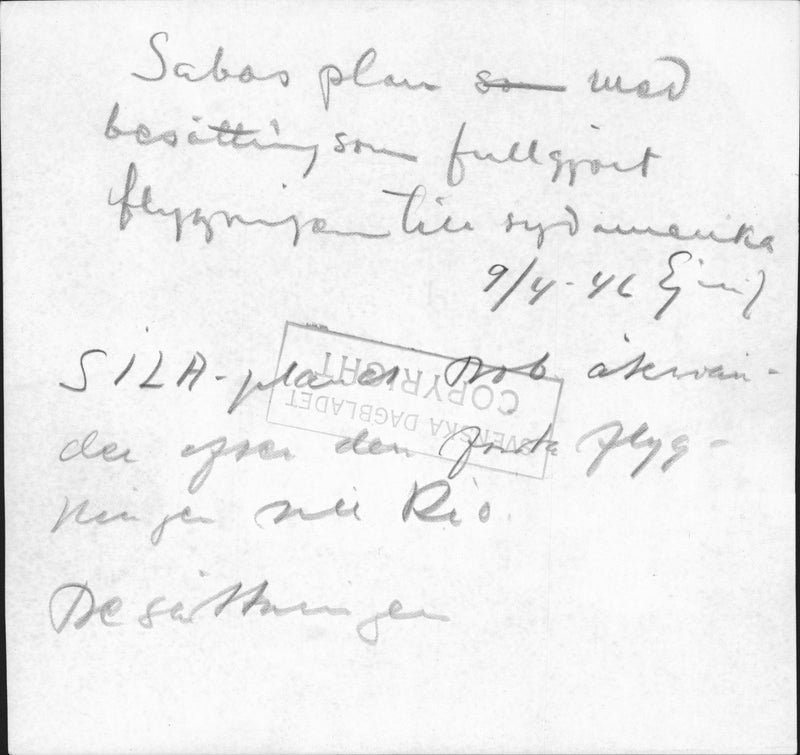 Sabas plan so med
besättning som fullgjort
flygningen till sydamerika
9/4-46
SILA-planet Bob återvän-
der efter den första flyg-
ningen till Rio.
Besättningen
COPYRIGHT
SVENSKA DAGBLADET